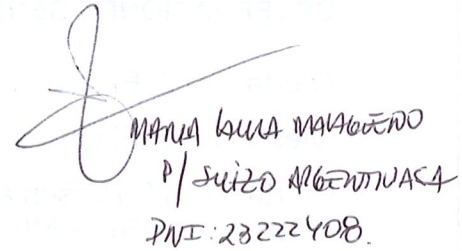 MARIA LAURA MALAGUEÑO
P/ SUIZO ARGENTINA CA
DNI: 23222408.